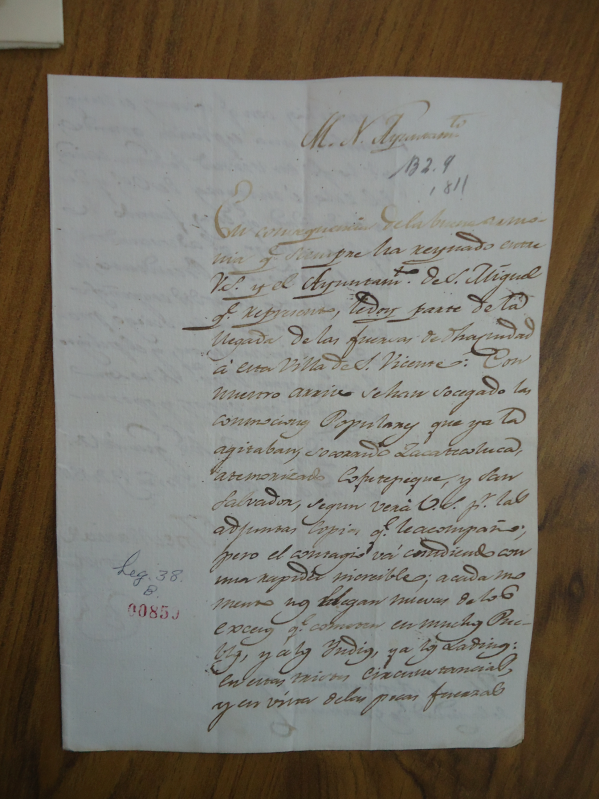 M. N. Ayuntam.to
B2.9
1811
En consequencia de la buena armo
nia q.e siempre ha reynado entre
VS. y el Ayuntam.to de S. Miguel
q.e represento, le doy parte de la
llegada de las fuerzas de
á esta Villa de S. Vicente. Con
nuestro arrivo se han socegado las
conmociones Populares que ya la
agitaban, socorrido Zacatecoluca,
atemorizado Cojutepeque, y San
Salvador, segun verá V.S. p.r las
adjuntas Copias q.e le acompaño;
pero el contagio vá cundiendo con
una rapidez increible; a cada mo
mento nos llegan nuevas de los
excesos q.e cometen en muchos Pue-
blos, ya los Indios, ya los Ladinos:
en estas tristes circunstancias,
y en vista de las pocas fuerzas
Leg. 38.
8.
00859